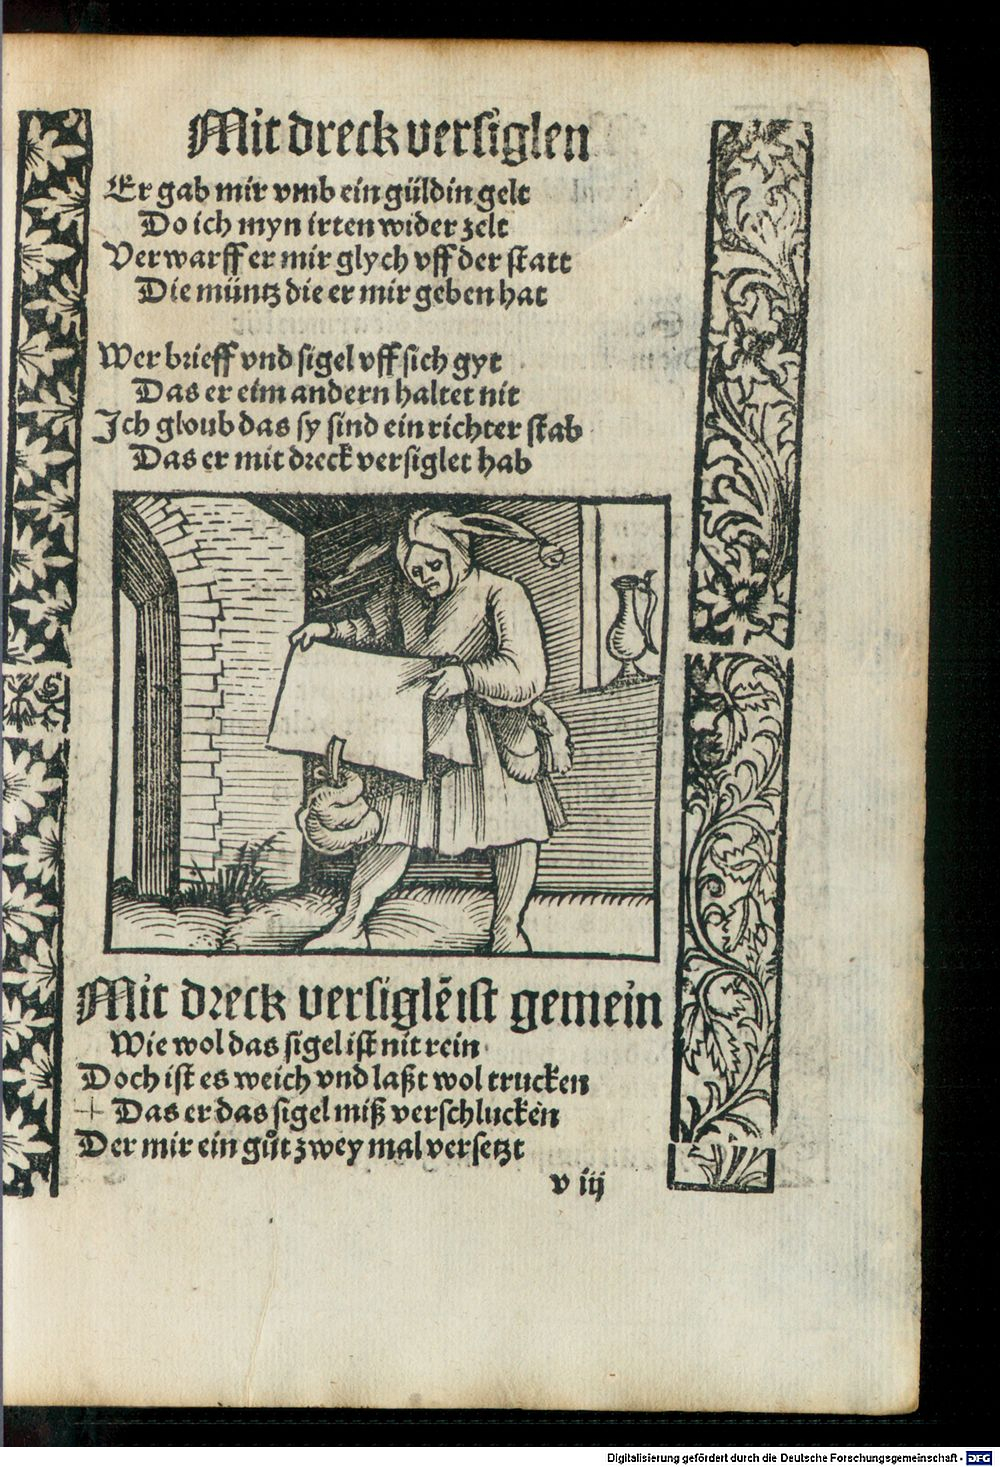 Mit dreck versiglen
Er gab mir vmb ein güldin gelt
Do ich myn irten wider zelt
Verwarff er mir glych vff der statt
Die müntz die er mir geben hat
Wer brieff vnd sigel vff sich gyt
Das er eim andern haltet nit
Ich gloub das sy sind ein richter stab
Das er mit dreck versiglet hab
Mit dreck versiglē ist gemein
Wie wol das sigel ist nit rein
Doch ist es weich vnd laßt wol trucken
Das er das sigel miß verschlucken
Der mir ein gůt zwey mal versetzt
v iij
Digitalisierung gefördert durch die Deutsche Forschungsgemeinschaft - DFG